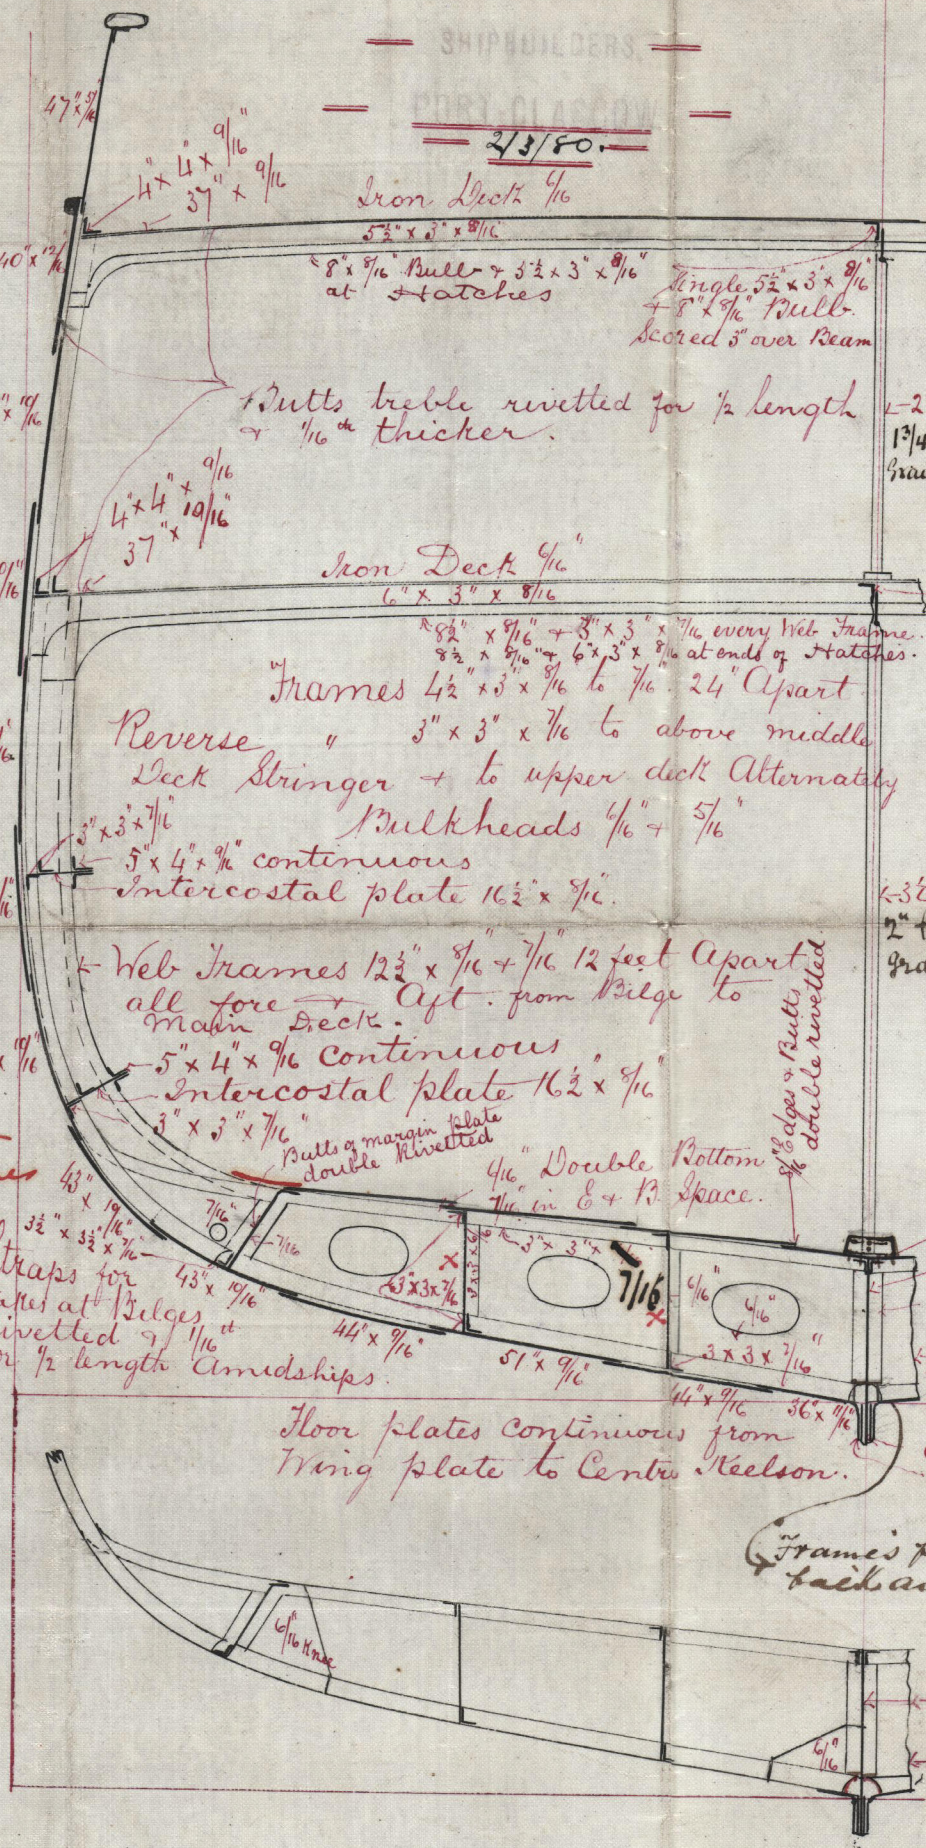 SHIPBUILDERS,
PORT GLASGOW
2/3/80.
47" x 5/16
4" x 4" x 9/16"
37" x 9/16
Iron Deck 6/16
5½" x 3" x 8/16
40" x 12/16
8" x 8/16" Bulb + 5½ x 3" x 8/16"
at Hatches
Single 5½ x 3 x 8/16"
+ 8" x 8/16" Bulb.
Scored 3" over Beam
" x 10/16
Butts treble rivetted for ½ length
+ 1/16th thicker.
1 3/4
4" x 4" x 9/16
37" x 10/16"
Iron Deck 6/16"
6" x 3" x 8/16
8½" x 8/16" + 3" x 3" x 7/16 every Web Frame.
8½ x 8/16" + 6" x 3" x 8/16 at ends of Hatches.
Frames 4½" x 3" x 8/16 to 7/16. 24" Apart
Reverse " 3" x 3" x 7/16 to above middle
Deck Stringer + to upper deck Alternately
Bulkheads 6/16" + 5/16"
3" x 3" x 7/16"
5" x 4" x 9/16" continuous
Intercostal plate 16½" x 8/16".
Web Frames 12½" x 8/16" + 7/16" 12 feet Apart
all fore + Aft. from Bilge to
Main Deck.
5" x 4" x 9/16 continuous
Intercostal plate 16½" x 8/16"
3" x 3" x 7/16"
Butts of margin plate
double Rivetted
Edges + Butts
double rivetted
6/16" Double Bottom
7/16" in E + B Space.
43" x 10/16"
3½" x 3½" x 7/16"
7/16"
7/16
3" x 3" x
7/16
3" x 3 x 7/16
6/16"
6/16"
3 x 3 x 7/16"
43" x 10/16"
44" x 9/16"
51" x 9/16"
44" x 9/16
36" x 11/16"
traps for
akes at Bilges
ivetted + 1/16th
or ½ length Amidships.
Floor plates continuous from
Wing plate to Centre Keelson.
Frames
6/16" Knee
6/16"